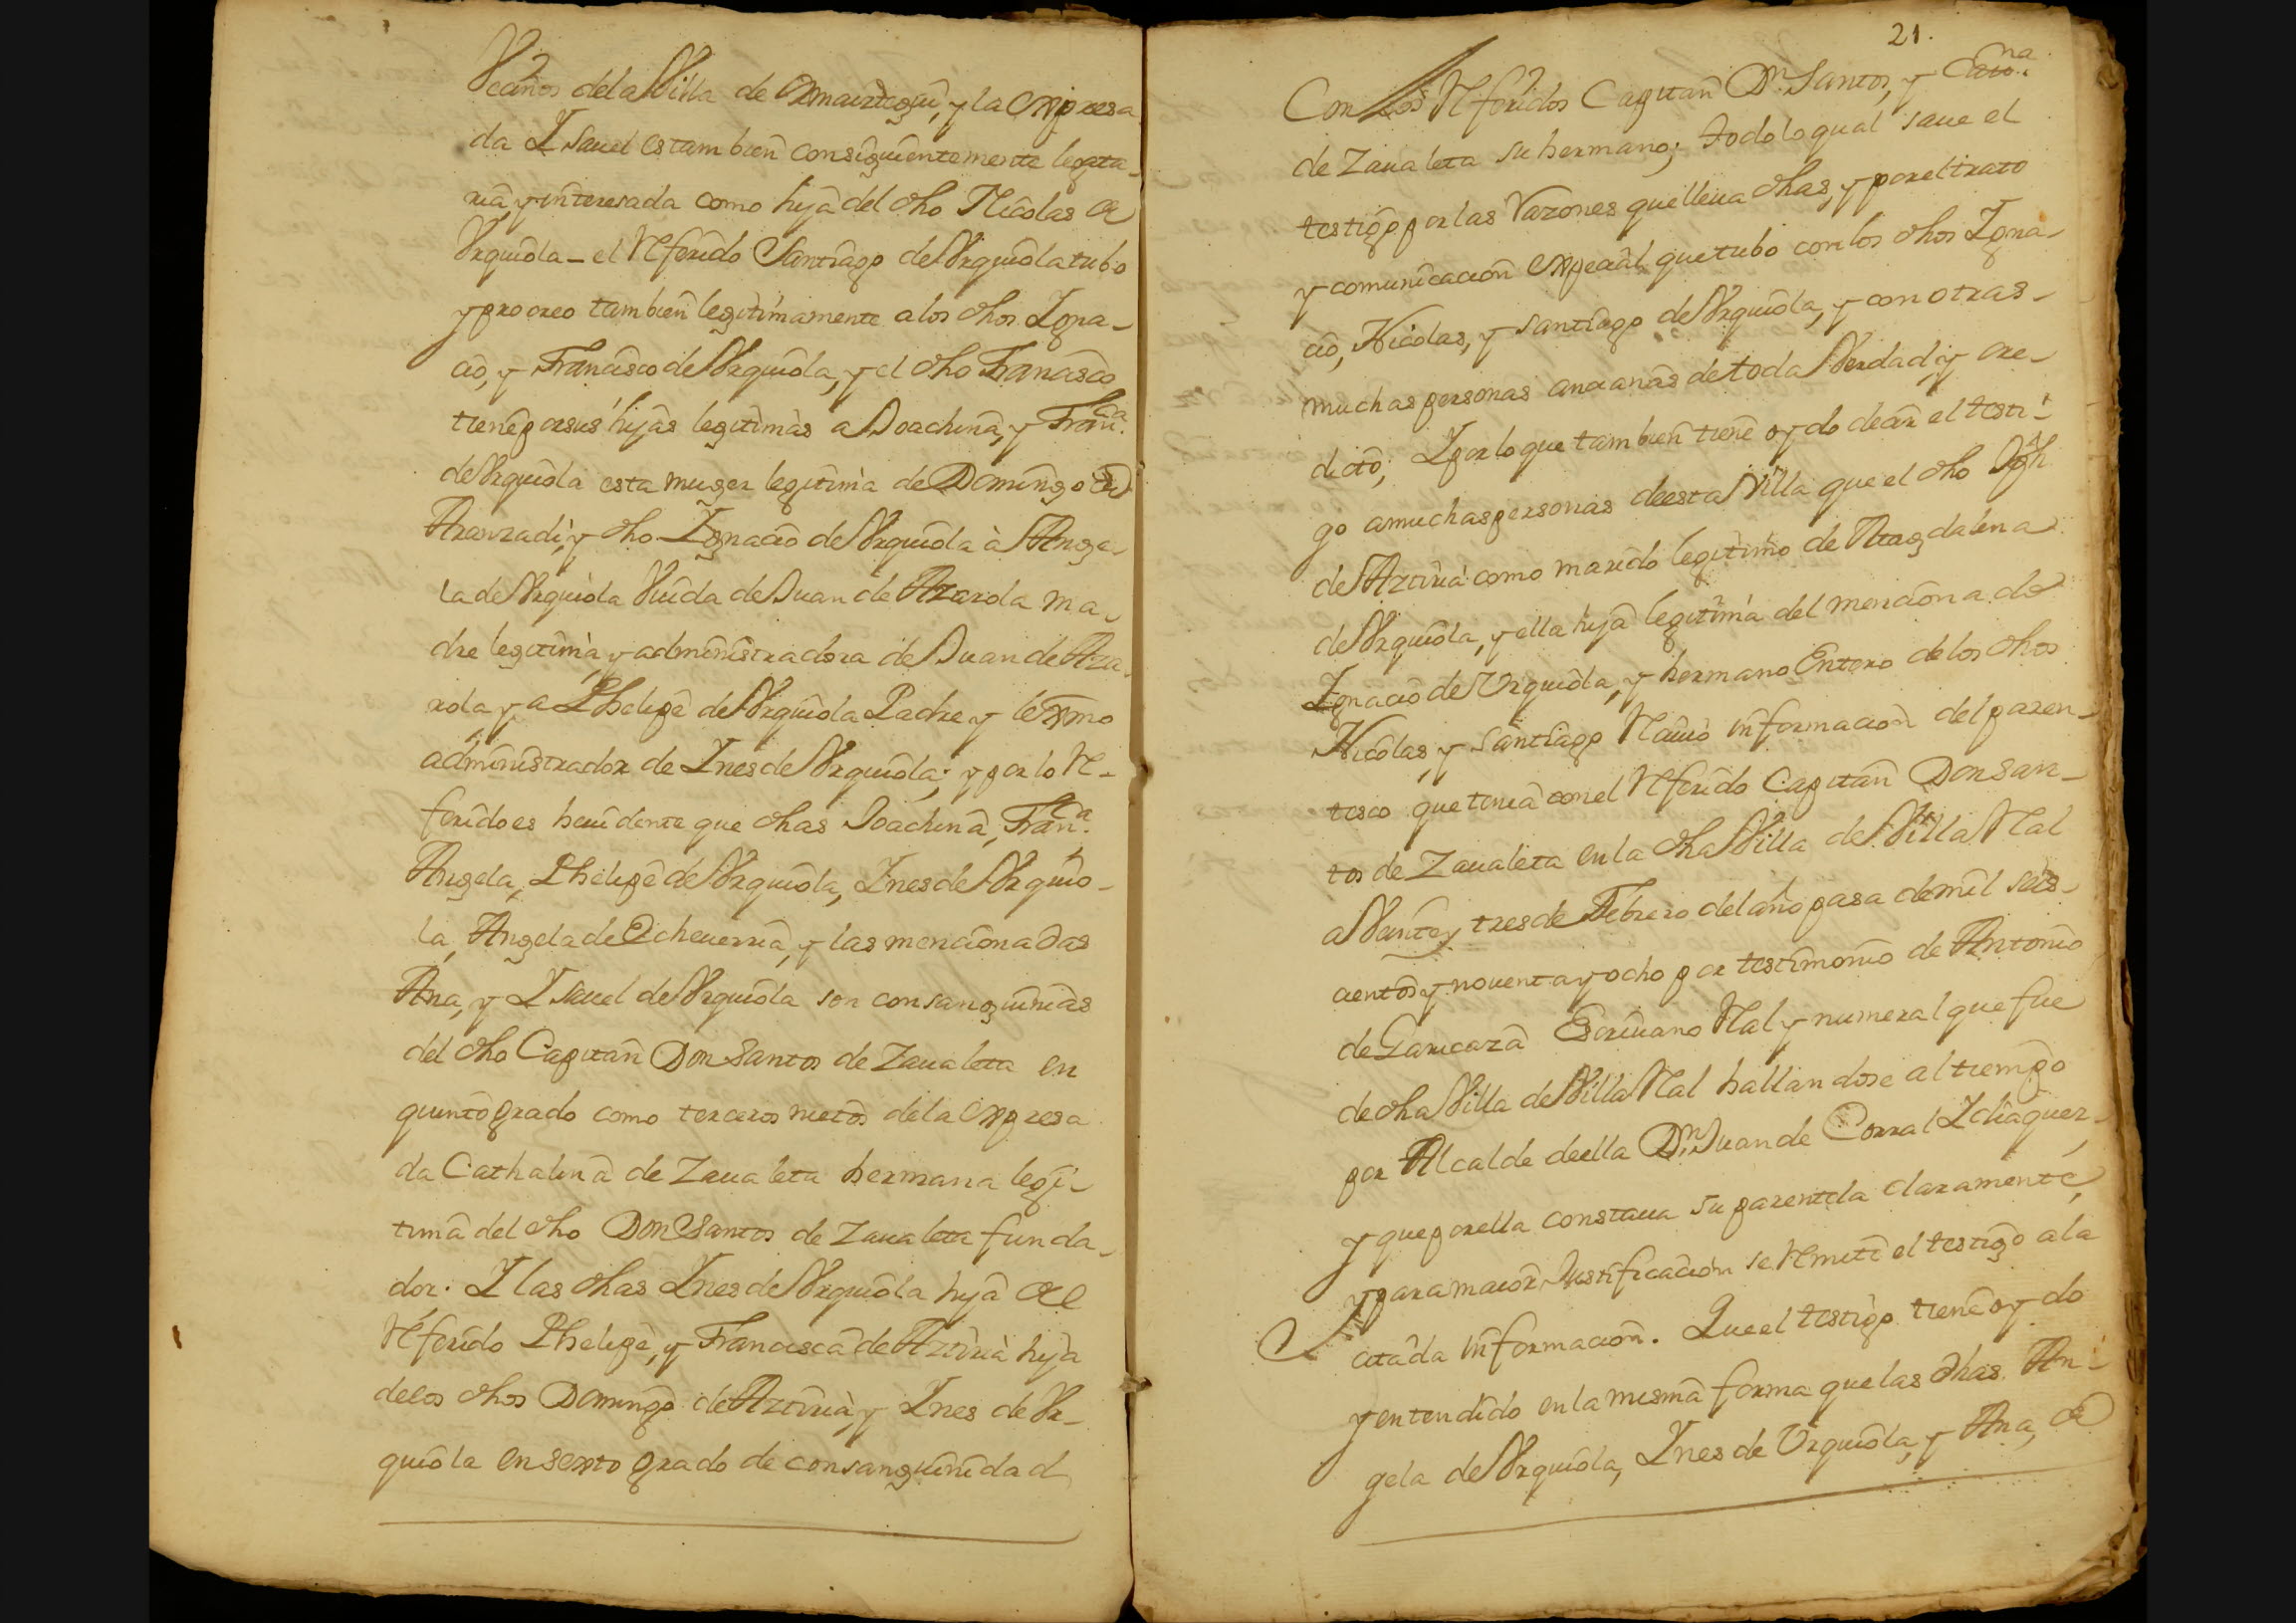 Vecinos dela Villa de Ormaiztegui, y la expresa
da Ysauel es tambien consiguientemente legata-
ria, y interesada como hija del dho Nicolas de
Vrquiola - el Referido Santiago de Vrquiola tubo
y procreo tambien legitimamente a los dhos Ygna-
cio, y Francisco de Vrquiola, y el dho Francisco
tiene por sus hijas legitimas a Joachina, y Franca.
de Vrquiola esta muger legitima de Domingo de
Aranzadi, y dho Ygnacio de Vrquiola à Ange-
la de Vrquiola Viuda de Juan de Azarola ma-
dre legitima, y administradora de Juan de Aza-
rola, y a Phelipe de Vrquiola Padre y lexmo
administrador de Ynes de Vrquiola; y por lo Re-
ferido es heuidente que dhas Joachina, Franca.
Angela, Phelipe de Vrquiola, Ynes de Vrquio-
la, Angela de Echeuerria, y las mencionadas
Ana, y Ysauel de Vrquiola son consanguinias
del dho Capitan Don Santos de Zaualeta en
quinto grado como terceros nietos dela expresa
da Cathalina de Zaualeta hermana legi-
tima del dho Don Santos de Zaualeta funda-
dor. Y las dhas Ynes de Vrquiola hija del
Referido Phelipe, y Francisca de Aztiria hija
delos dhos Domingo de Aztiria, y Ynes de Vr-
quiola en sexto grado de consanguinidad
21.
Con los Referidos Capitan Dn. Santos, y Cathna.
de Zaualeta su hermano; todo lo qual saue el
testigo por las Razones que lleua dhas, y por el trato
y comunicacion expecial que tubo con los dhos Ygna-
cio, Nicolas, y Santiago de Vrquiola, y con otras
muchas personas ancianas de toda Verdad, y cre-
dicto; Y por lo que tambien tiene oydo decir el testi-
go a muchas personas deesta Villa que el dho
de Aztiria como marido legitimo de Magdalena
de Vrquiola, y ella hija legitima del mencionado
Ygnacio de Vrquiola, y hermano Entero de los dhos
Nicolas, y Santiago Reciuio informacion del paren-
tesco que tenia con el Referido Capitan Don San-
tos de Zaualeta en la dha Villa de Villa Real
a Veinte y tres de Febrero del año pasa de mil seis-
cientos y nouenta y ocho por testimonio de Antonio
de Garicaza Escriuano Real y numeral que fue
de dha Villa de Villa Real hallandose al tiempo
por Alcalde deella Dn. Juan de Corral Ydiaquez-
y que por ella constaua su parentela claramente,
y para maior Justificacion se Remite el testigo a la
citada informacion. Que el testigo tiene oydo
y entendido en la misma forma que las dhas An-
gela de Vrquiola, Ynes de Vrquiola, y Ana, de